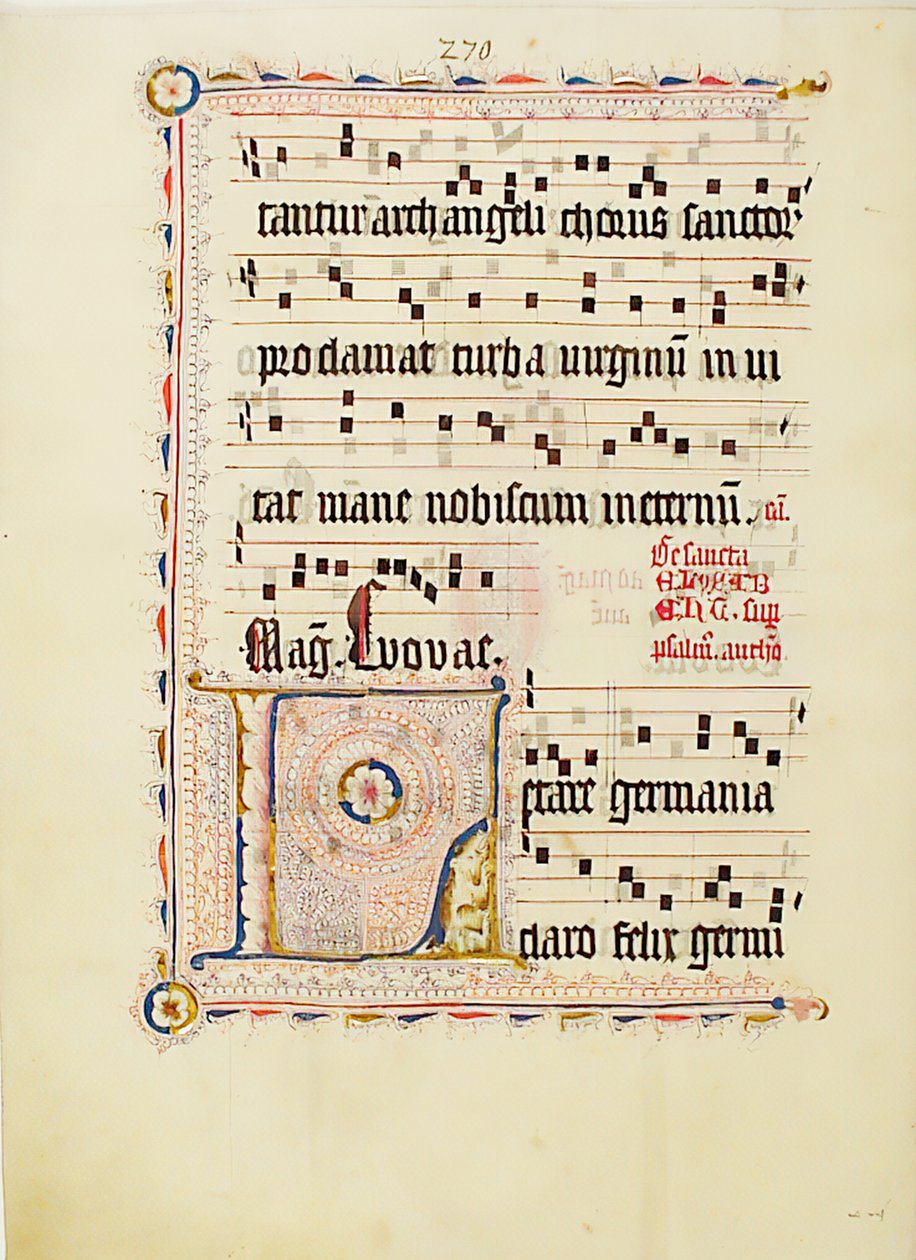 270
tantur arch angeli chorus sanctor
pro clamat turba uirginū in ui
tat mane nobiscum in eternū. cā.
De sancta
ELYZAB
ETH. sup
psalm̄. anthō
Mag̃. Evovae.
L etare germania
claro felix germi